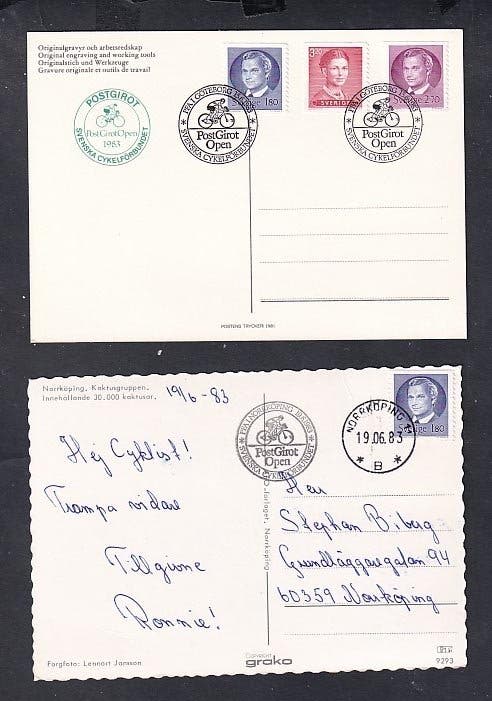 Originalgravyr och arbetsredskap
Original engraving and working tools
Originalstich und Werkzeuge
Gravure originale et outils de travail
POSTGIROT
PostGirotOpen
1983
SVENSKA CYKELFÖRBUNDET
Sverige 1.80
3.20
SVERIGE
Sverige 2.70
PFA 1 GÖTEBORG
PostGirot
Open
SVENSKA CYKELFÖRBUNDET
PFA 1 GÖTEBORG
PostGirot
Open
SVENSKA CYKELFÖRBUNDET
POSTENS TRYCKERI 1981
Norrköping, Kaktusgruppen.
Innehållande 30.000 kaktusar.
19/6-83
Hej Cyklist!
Trampa vidare
Tillgivne
Ronnie!
Fargfoto: Lennart Jansson
PFA 1 NORRKÖPING
PostGirot
Open
SVENSKA CYKELFÖRBUNDET
NORRKÖPING
19.06.83
* B *
Sverige 1.80
Herr
Stephan Biberg
Grundläggaregatan 94
60359 Norrköping
Förlaget, Norrköping
Copyright
grako
9293